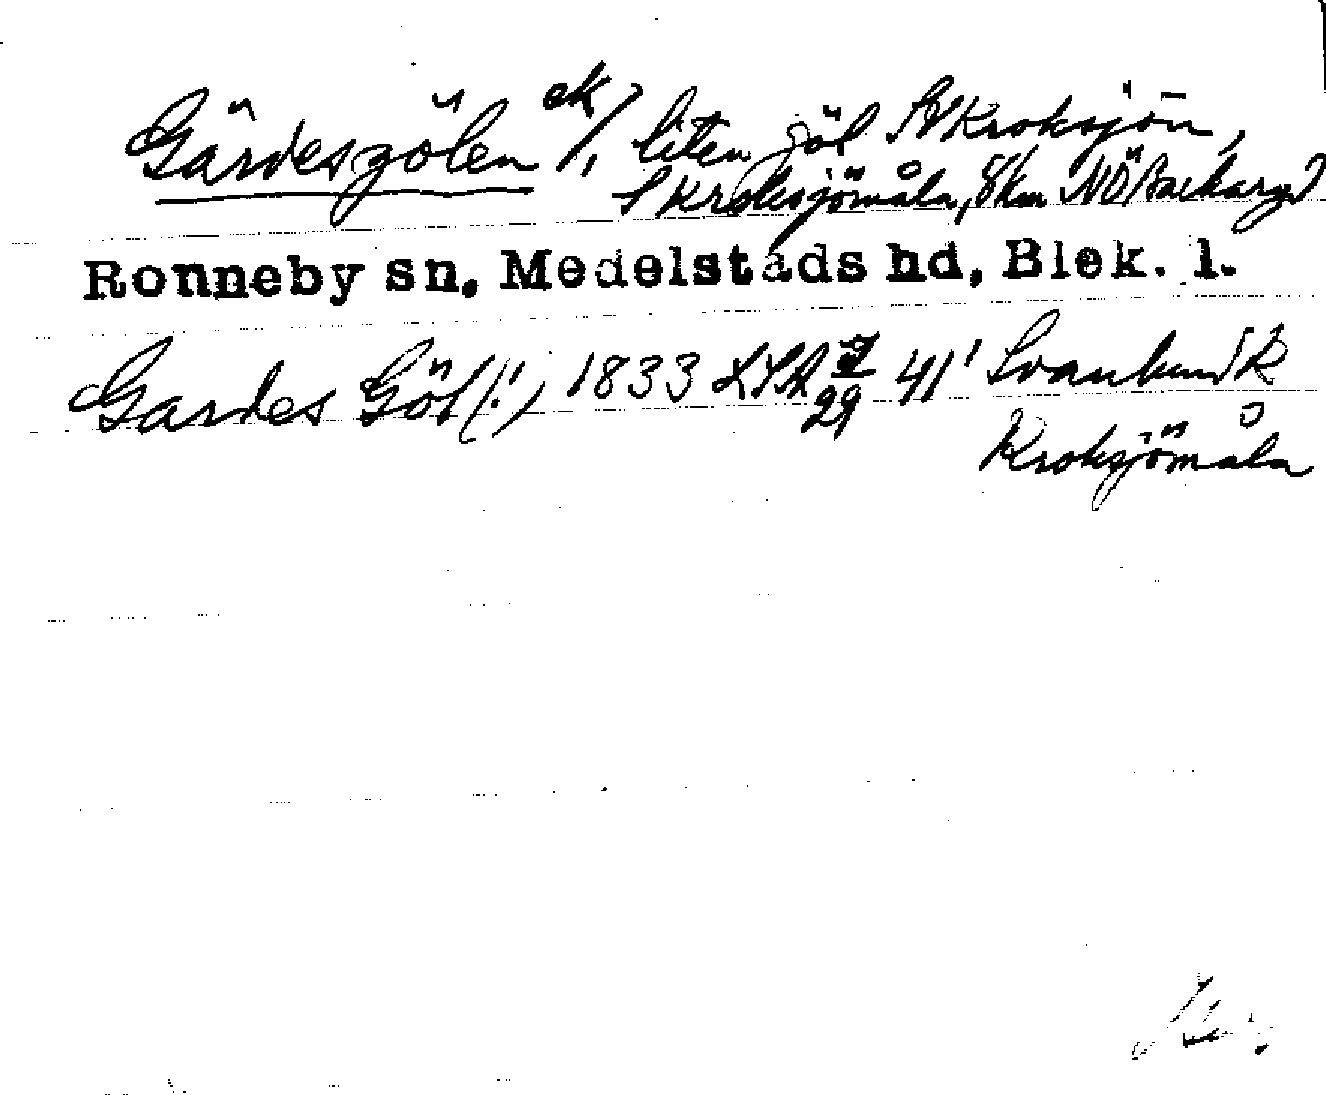 Gärdesgölen ek/, liten göl SV Kroksjön,
S Kroksjömåla, 8 km NÖ Backaryd
Ronneby sn, Medelstads hd, Blek. l.
Gardes Göl (!), 1833 LSA 29 41'
Kroksjömåla